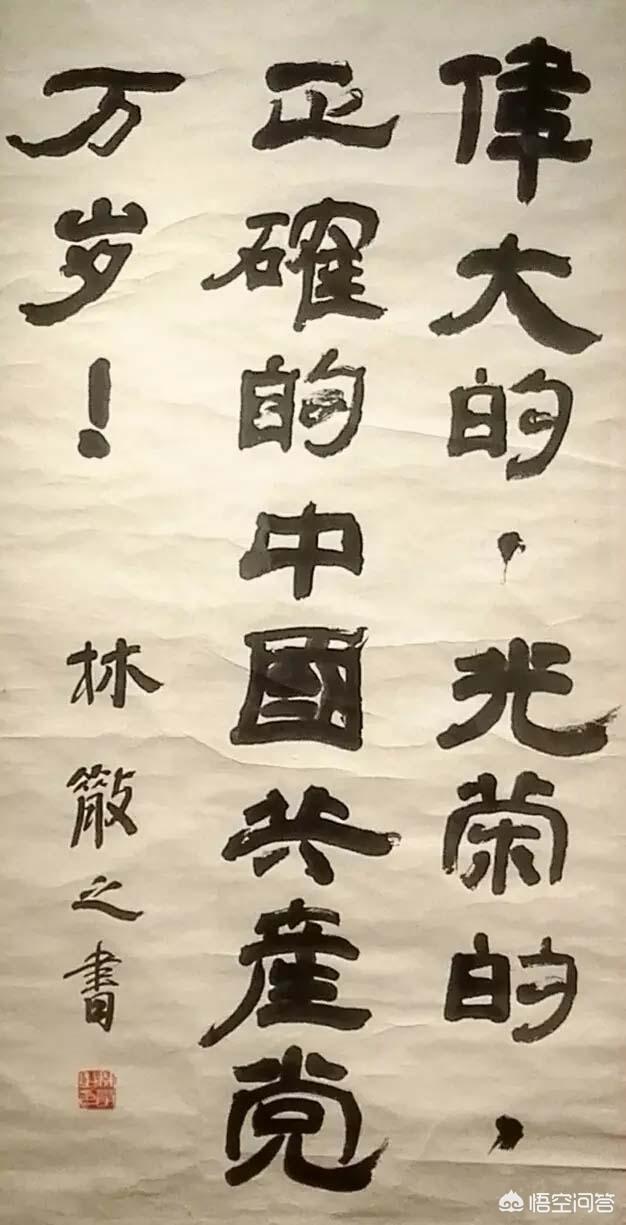 偉大的，光荣的，
正確的中國共産党
万岁！
林散之書
悟空问答